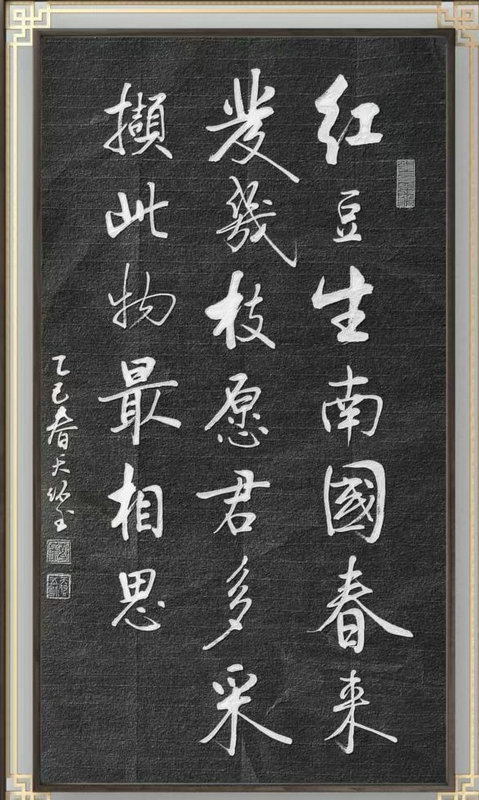 红豆生南國春来
發幾枝愿君多采
擷此物最相思
乙巳春天